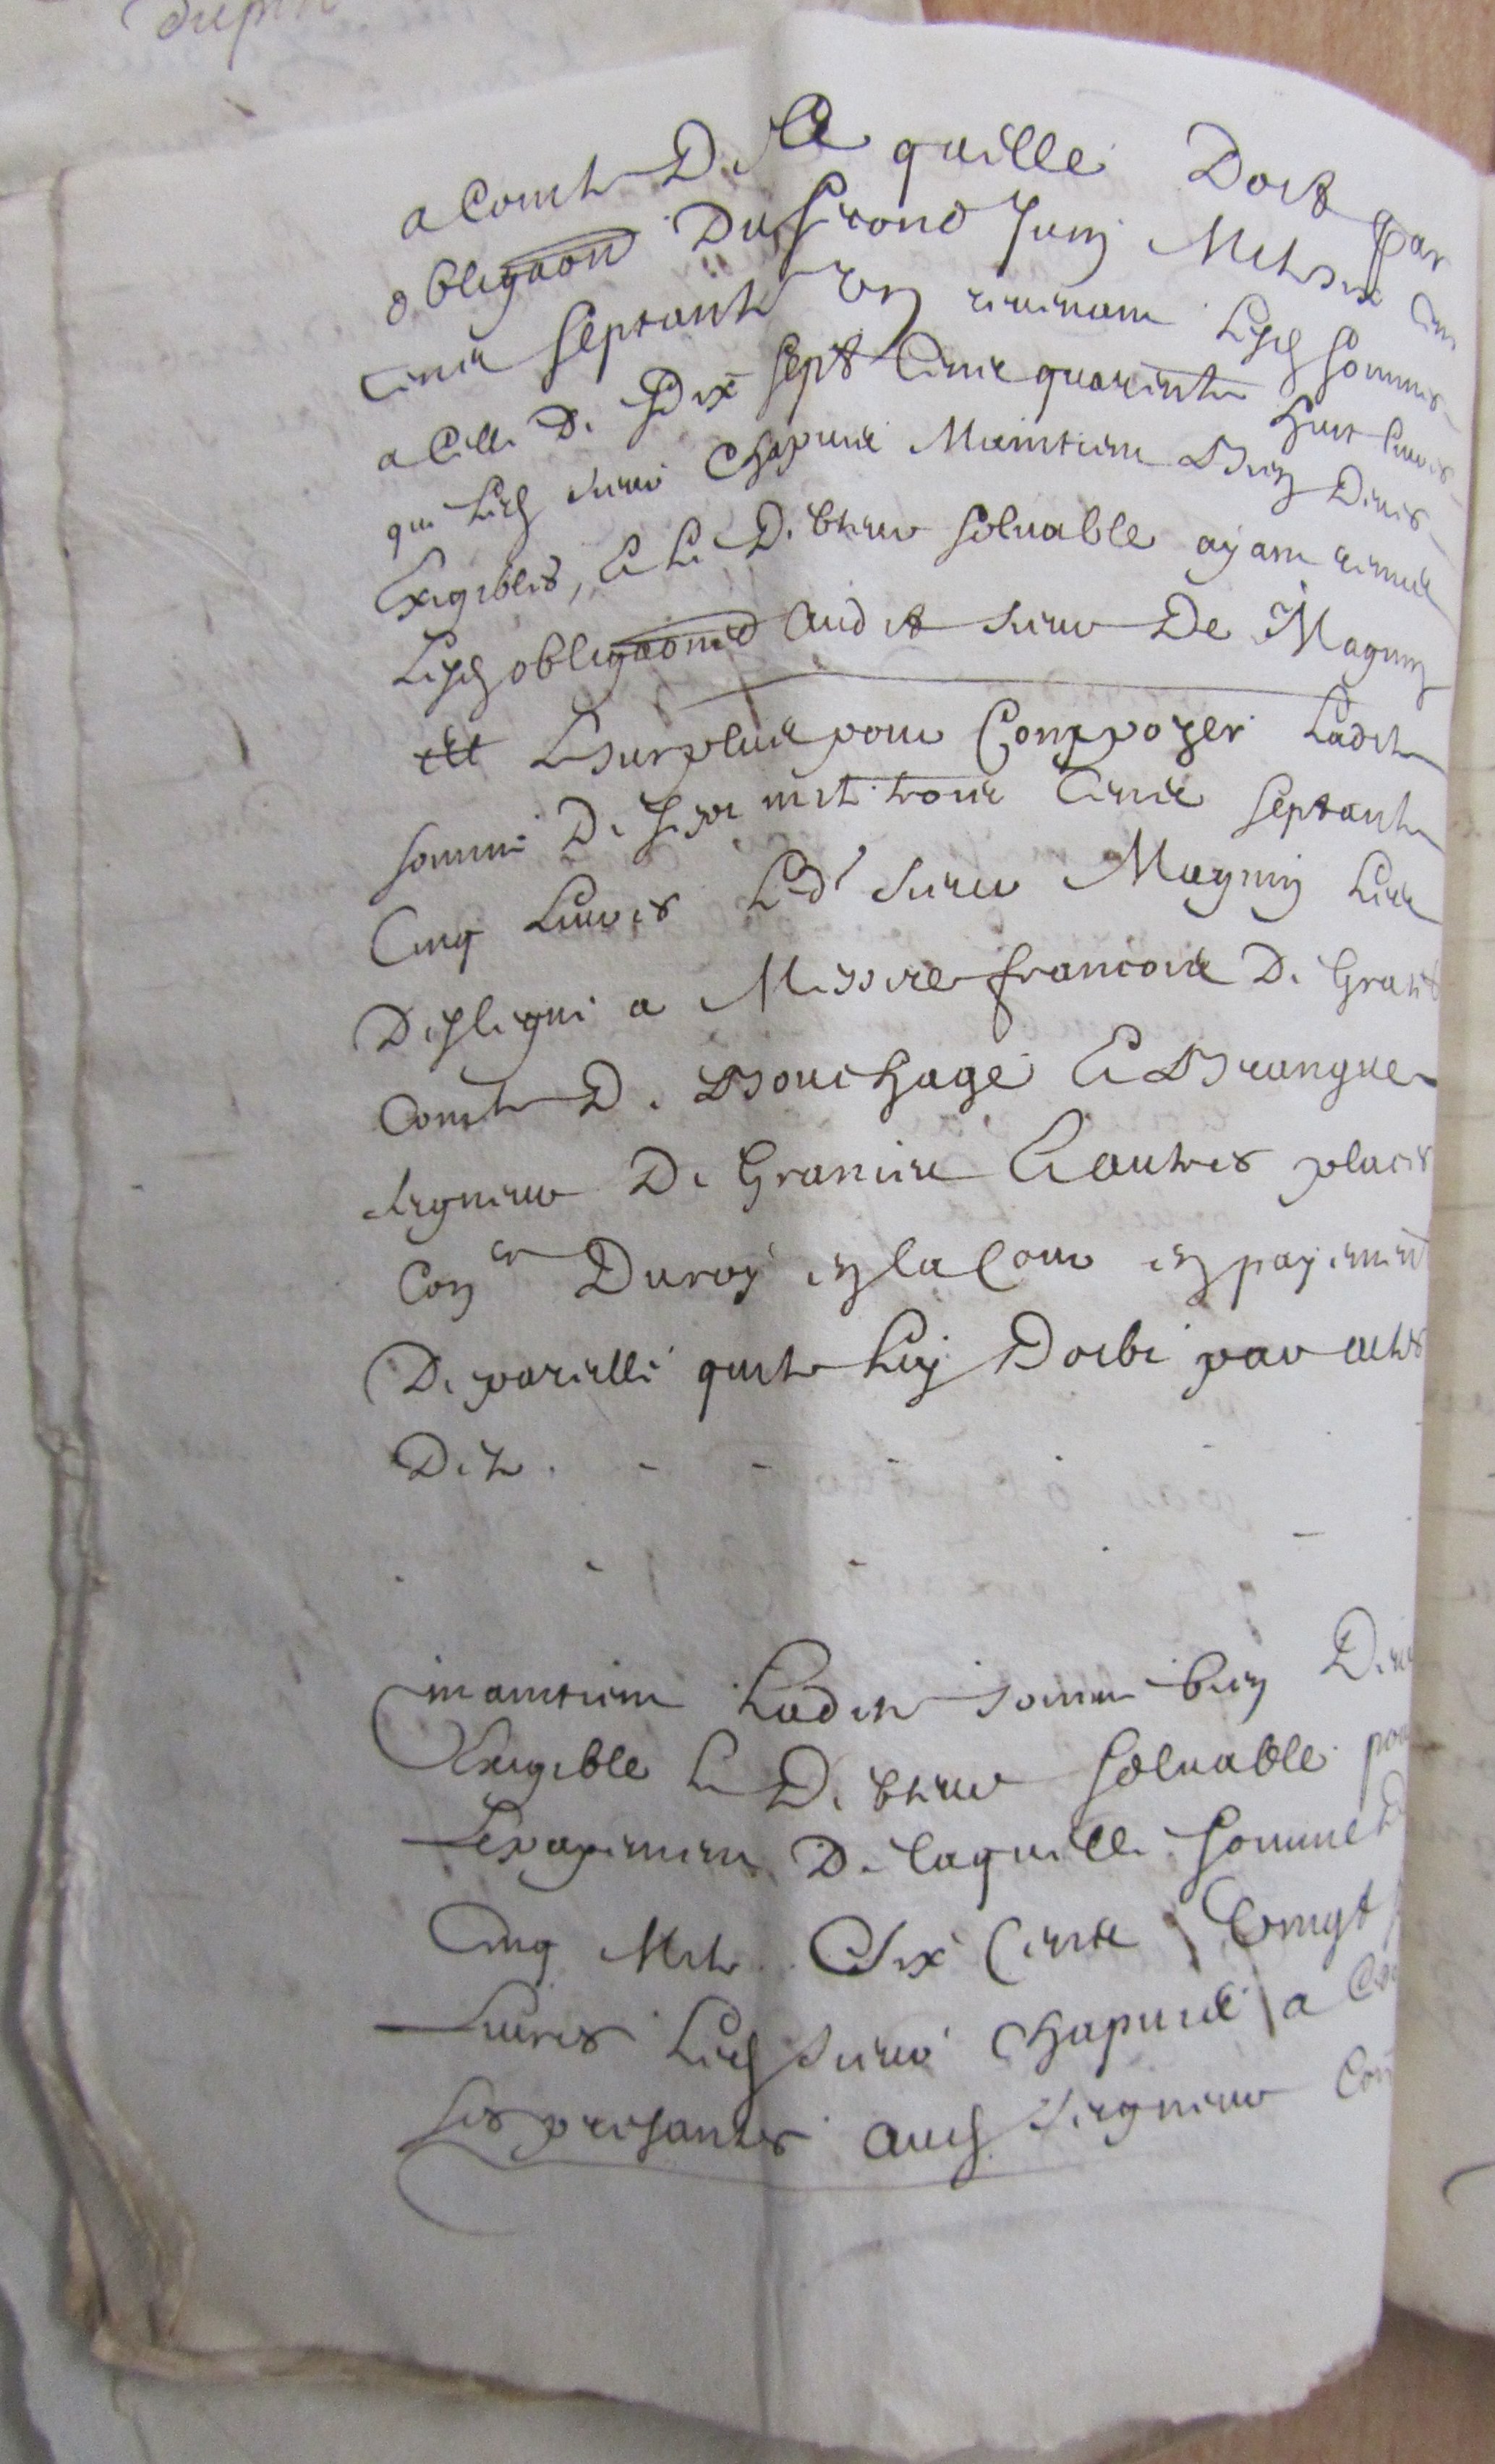 a Comte De ce quelle Doit par
obligaõn Du second Juin Mil six
Cents septante un revenant lesd sommes
a Celle De Dix sept Cents quarante huit livres
que led sieur Chapuis Maintient Bien Deues
Exigibles, & le Debteur soluable ayant remis
lesd obligaõns audit sieur De Magnin
et le surplus pour Composer ladite
somme De six mil trois Cents septante
Cinq Livres led sieur Magnin les a
Deslegué a Messire francois De Gratet
Comte De Bouchage & Brangue
seigneur De Graniere & autres places
Con.er Du roy en la Cour en payement
De pareille quil luy Doibt par acte
De
maintient ladite somme bien Deue
Exigible le Debteur soluable pour
le payement De laquelle somme De
Cinq Mil Six Cents Vingt
Livres led sieur Chapuis a
ses presantes aud seigneur